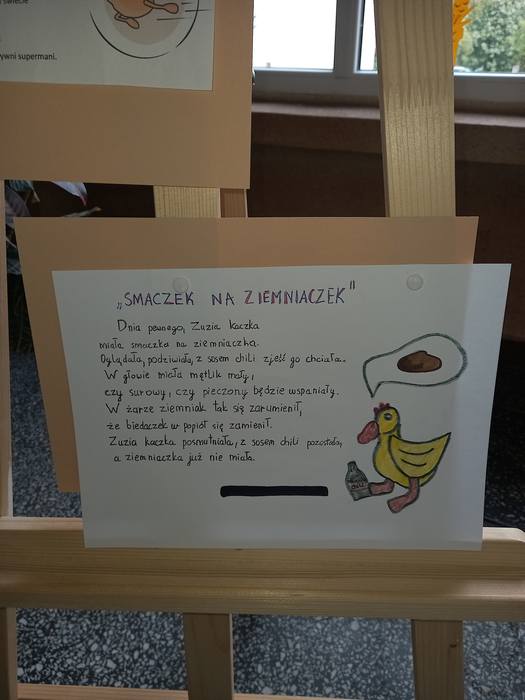 świecie
ywni supermani.
„SMACZEK NA ZIEMNIACZEK"
Dnia pewnego, Zuzia kaczka
miała smaczka na ziemniaczka.
Oglądała, podziwiała, z sosem chili zjeść go chciała.
W głowie miała mętlik mały,
czy surowy, czy pieczony będzie wspaniały.
W żarze ziemniak tak się zarumienił,
że biedaczek w popiół się zamienił.
Zuzia kaczka posmutniała, z sosem chili pozostała,
a ziemniaczka już nie miała.